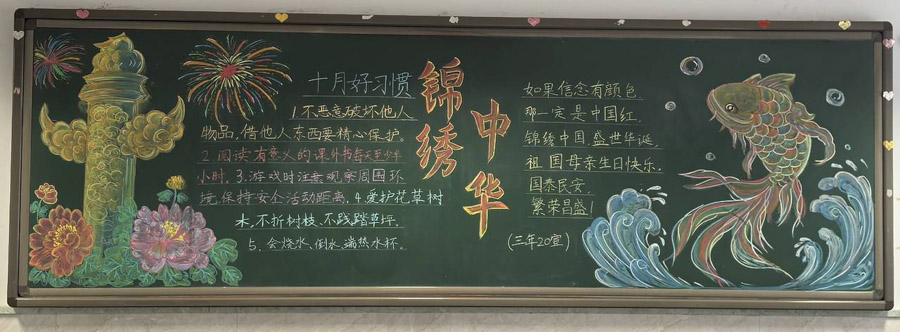 十月好习惯
1.不恶意破坏他人
物品,借他人东西要精心保护。
2.阅读有意义的课外书每天至少半
小时。3.游戏时注意观察周围环
境,保持安全活动距离。4.爱护花草树
木,不折树枝、不践踏草坪。
5、会烧水、倒水、端热水杯。
锦绣
中华
如果信念有颜色
那一定是中国红.
锦绣中国,盛世华诞,
祖国母亲生日快乐.
国泰民安,
繁荣昌盛!
(三年20宣)